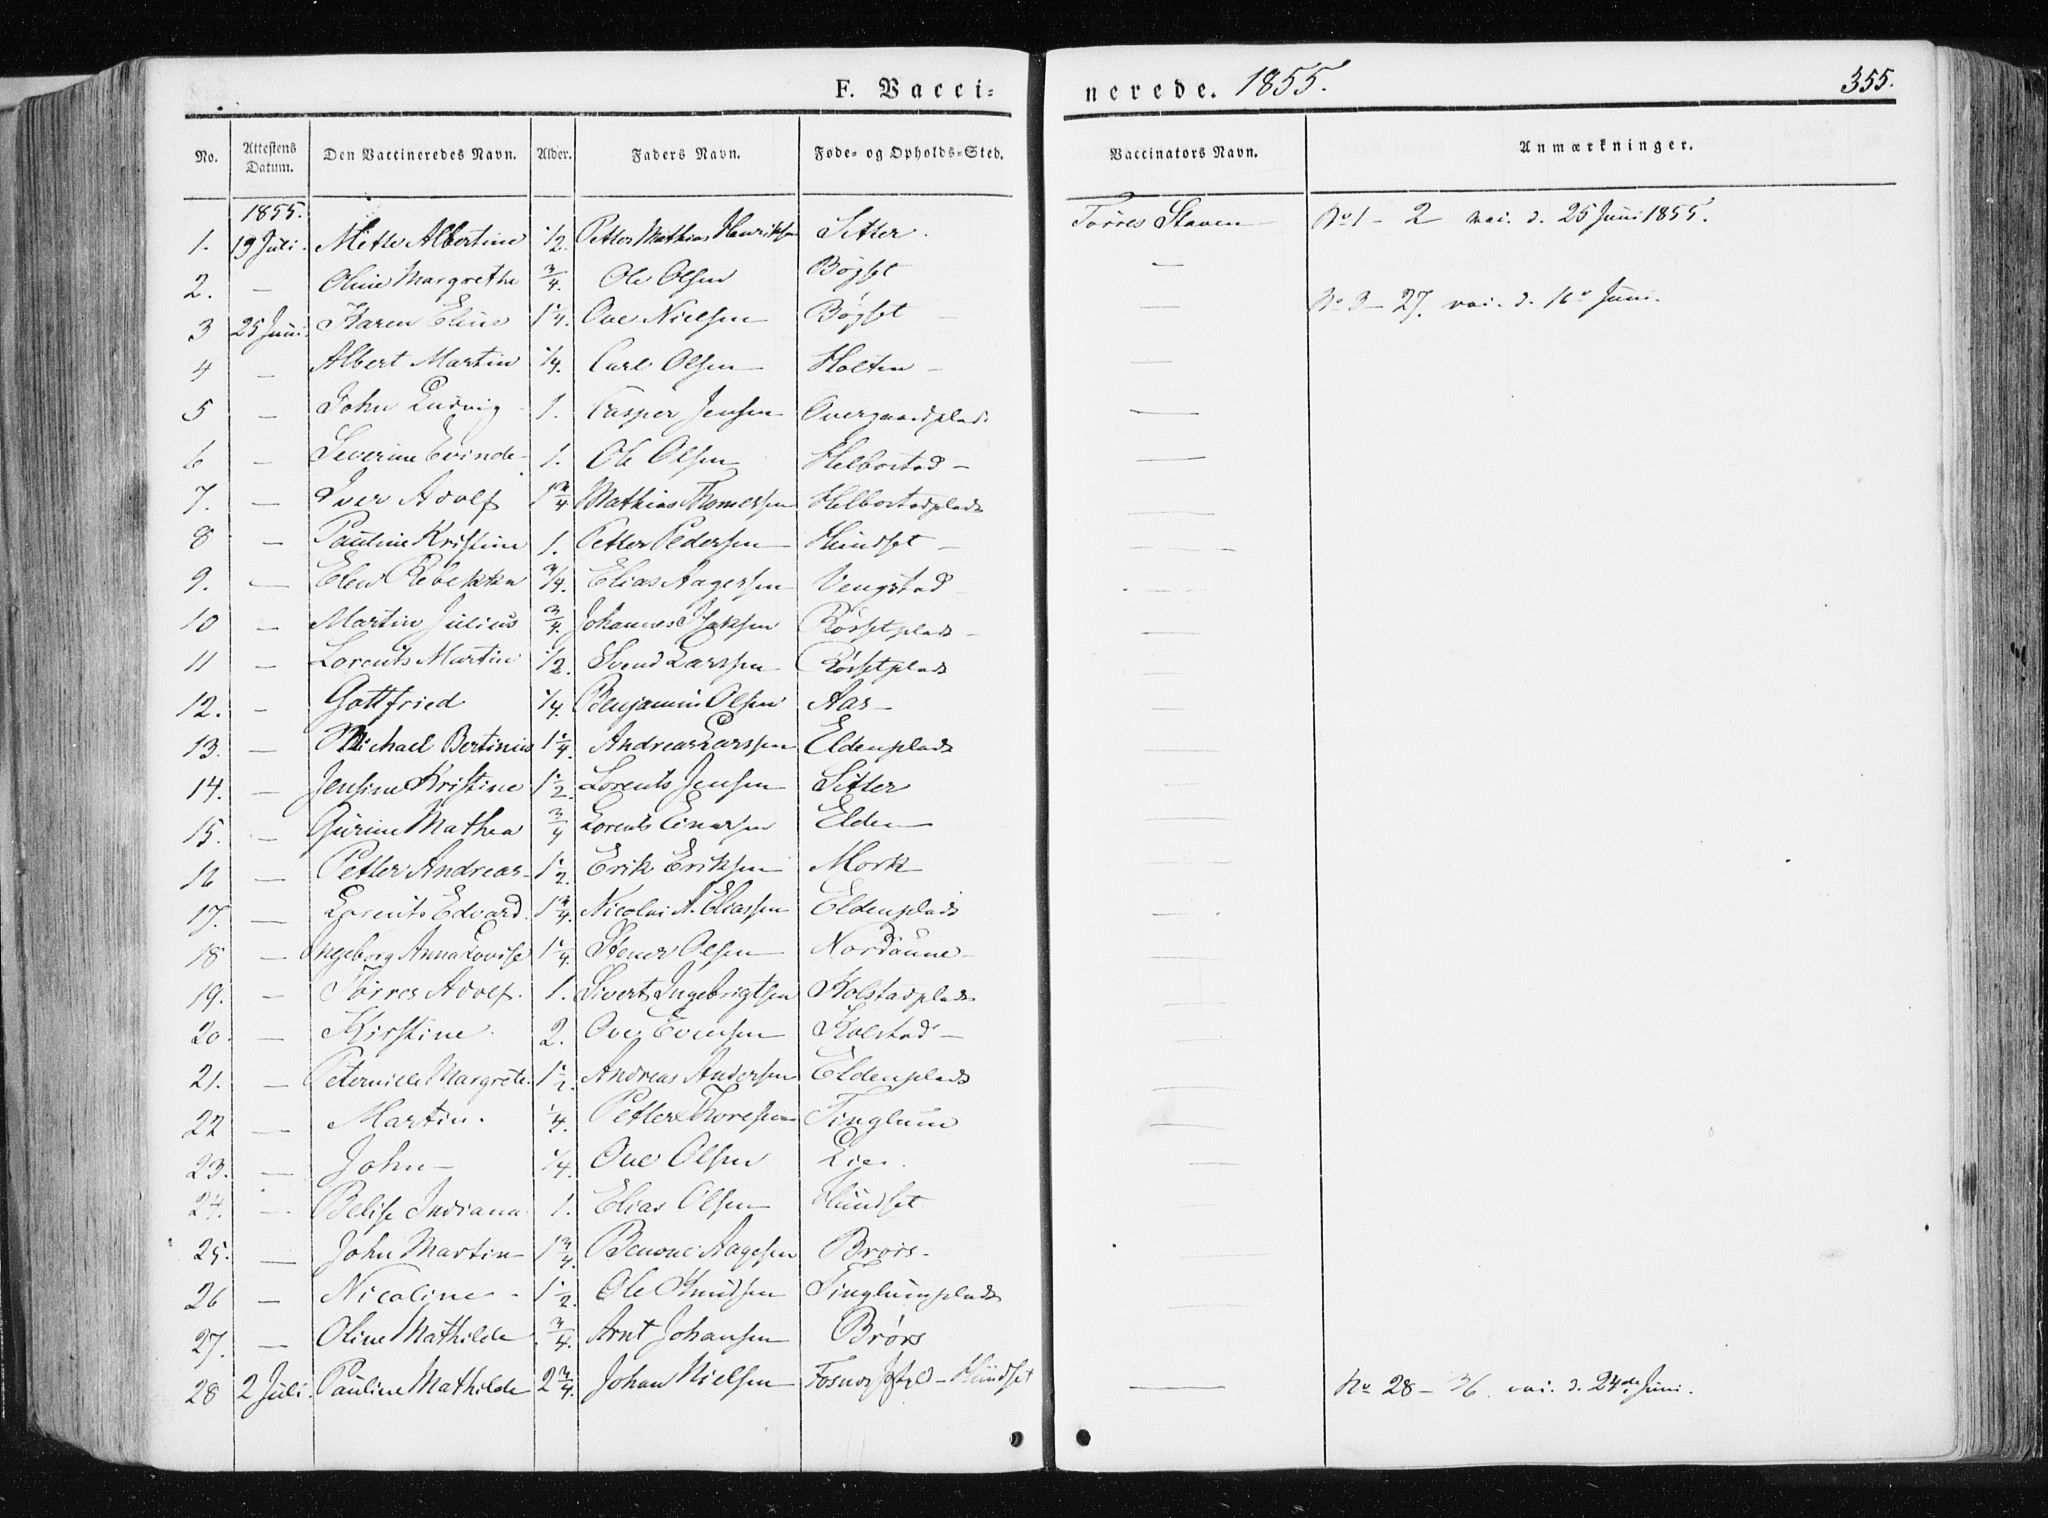 F. Vacci= nerede. 1855. 355.
No. Attestens Datum. Den Vaccineredes Navn. Alder. Faders Navn. Føde- og Opholds-Sted. Vaccinators Navn. Anmærkninger.
1855.
1. 19 Juli. Mette Albertine 1/2. Petter Mathias Henriksen Sitter. Tørres Staven No 1 - 2 vai. d. 25 Juni 1855.
2. — Oline Margrethe 3/4. Ole Olsen Bøgset —
3 25 Juni. Karen Eline 1 1/4. Ove Nielsen Bøgset — No 3 - 27. vai. d. 16de Juni.
4 — Albert Martin 1/4. Carl Olsen Holten —
5 — John Ludvig 1. Casper Jensen Overgaardplads —
6 — Severine Evinde 1. Ole Olsen Helbostad —
7. — Iver Adolf 1 3/4 Mathias Thomessen Helbostadplads —
8 — Pauline Kristine 1. Petter Pedersen Hundset —
9. — Elen Rebekka 3/4. Elias Aagersen Vengstad —
10 — Martin Julius 3/4. Johannes Isaksen Røssetplads —
11 — Lorents Martin 1/2. Svend Larssen Røssetplads —
12. — Gottfried 1/4. Benjamin Olsen Aas —
13. — Michael Bertinius 1 1/4. Andreas Larssen Eldenplads —
14. — Jensine Kristine 1 1/2. Lorents Jensen Sitter —
15. — Gurine Mathea 3/4 Lorents Einersen Elden —
16 — Petter Andreas 1 1/2. Erik Eriksen Mork —
17. — Lorents Edvard 1 3/4. Nicolai A. Eliassen Eldenplads —
18 — Ingeborg Anna Lovise 1 1/4. Stener Olsen Nordaune —
19. — Tørres Adolf. 1. Siverts Ingebrigtsen Kolstadplads —
20. — Kirstine 2. Ove Evensen Kolstad —
21. — Peternille Margrete. 1 1/2. Andreas Andersen Eldenplads —
22 — Martin. 1/4. Petter Thoresen Tinglum —
23. — John 1/4. Ove Olsen Lie. —
24. — Belise Indiana 1. Elias Olsen Hundset —
25. — John Martin 1 3/4. Benone Aagesen Brørs —
26 — Nicoline 1 1/2. Ole Knudsen Tinglumplads —
27. — Oline Mathilde 3/4. Arnt Johansen Brørs
28 2 Juli. Pauline Mathilde 2 3/4. Johan Nielsen Hundset — No 28 - 36. vai. d. 24de Juni.